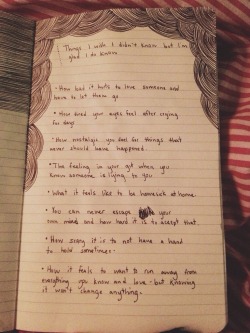 Things I wish I didn't know but I'm
glad I do know
- How bad it hurts to love someone and
have to let them go
- How tired your eyes feel after crying
for days
- How nostalgic you feel for things that
never should have happened
- The feeling in your gut when you
know someone is lying to you
- What it feels like to be homesick at home.
- You can never escape your
own mind and how hard it is to accept that.
- How scary it is to not have a hand
to hold sometimes.
- How it feels to want to run away from
everything you know and love - but knowing
it won't change anything.